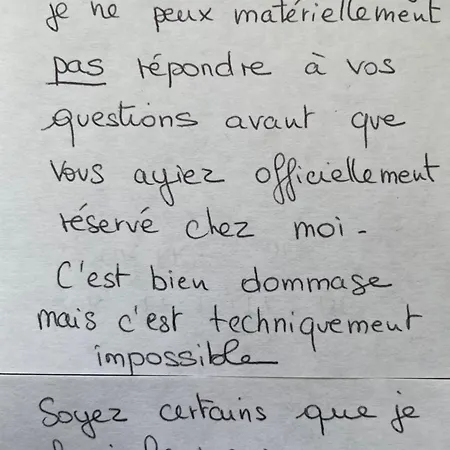 je ne peux matériellement
pas répondre à vos
questions avant que
vous ayiez officiellement
réservé chez moi -
C'est bien dommage
mais c'est techniquement
impossible
Soyez certains que je